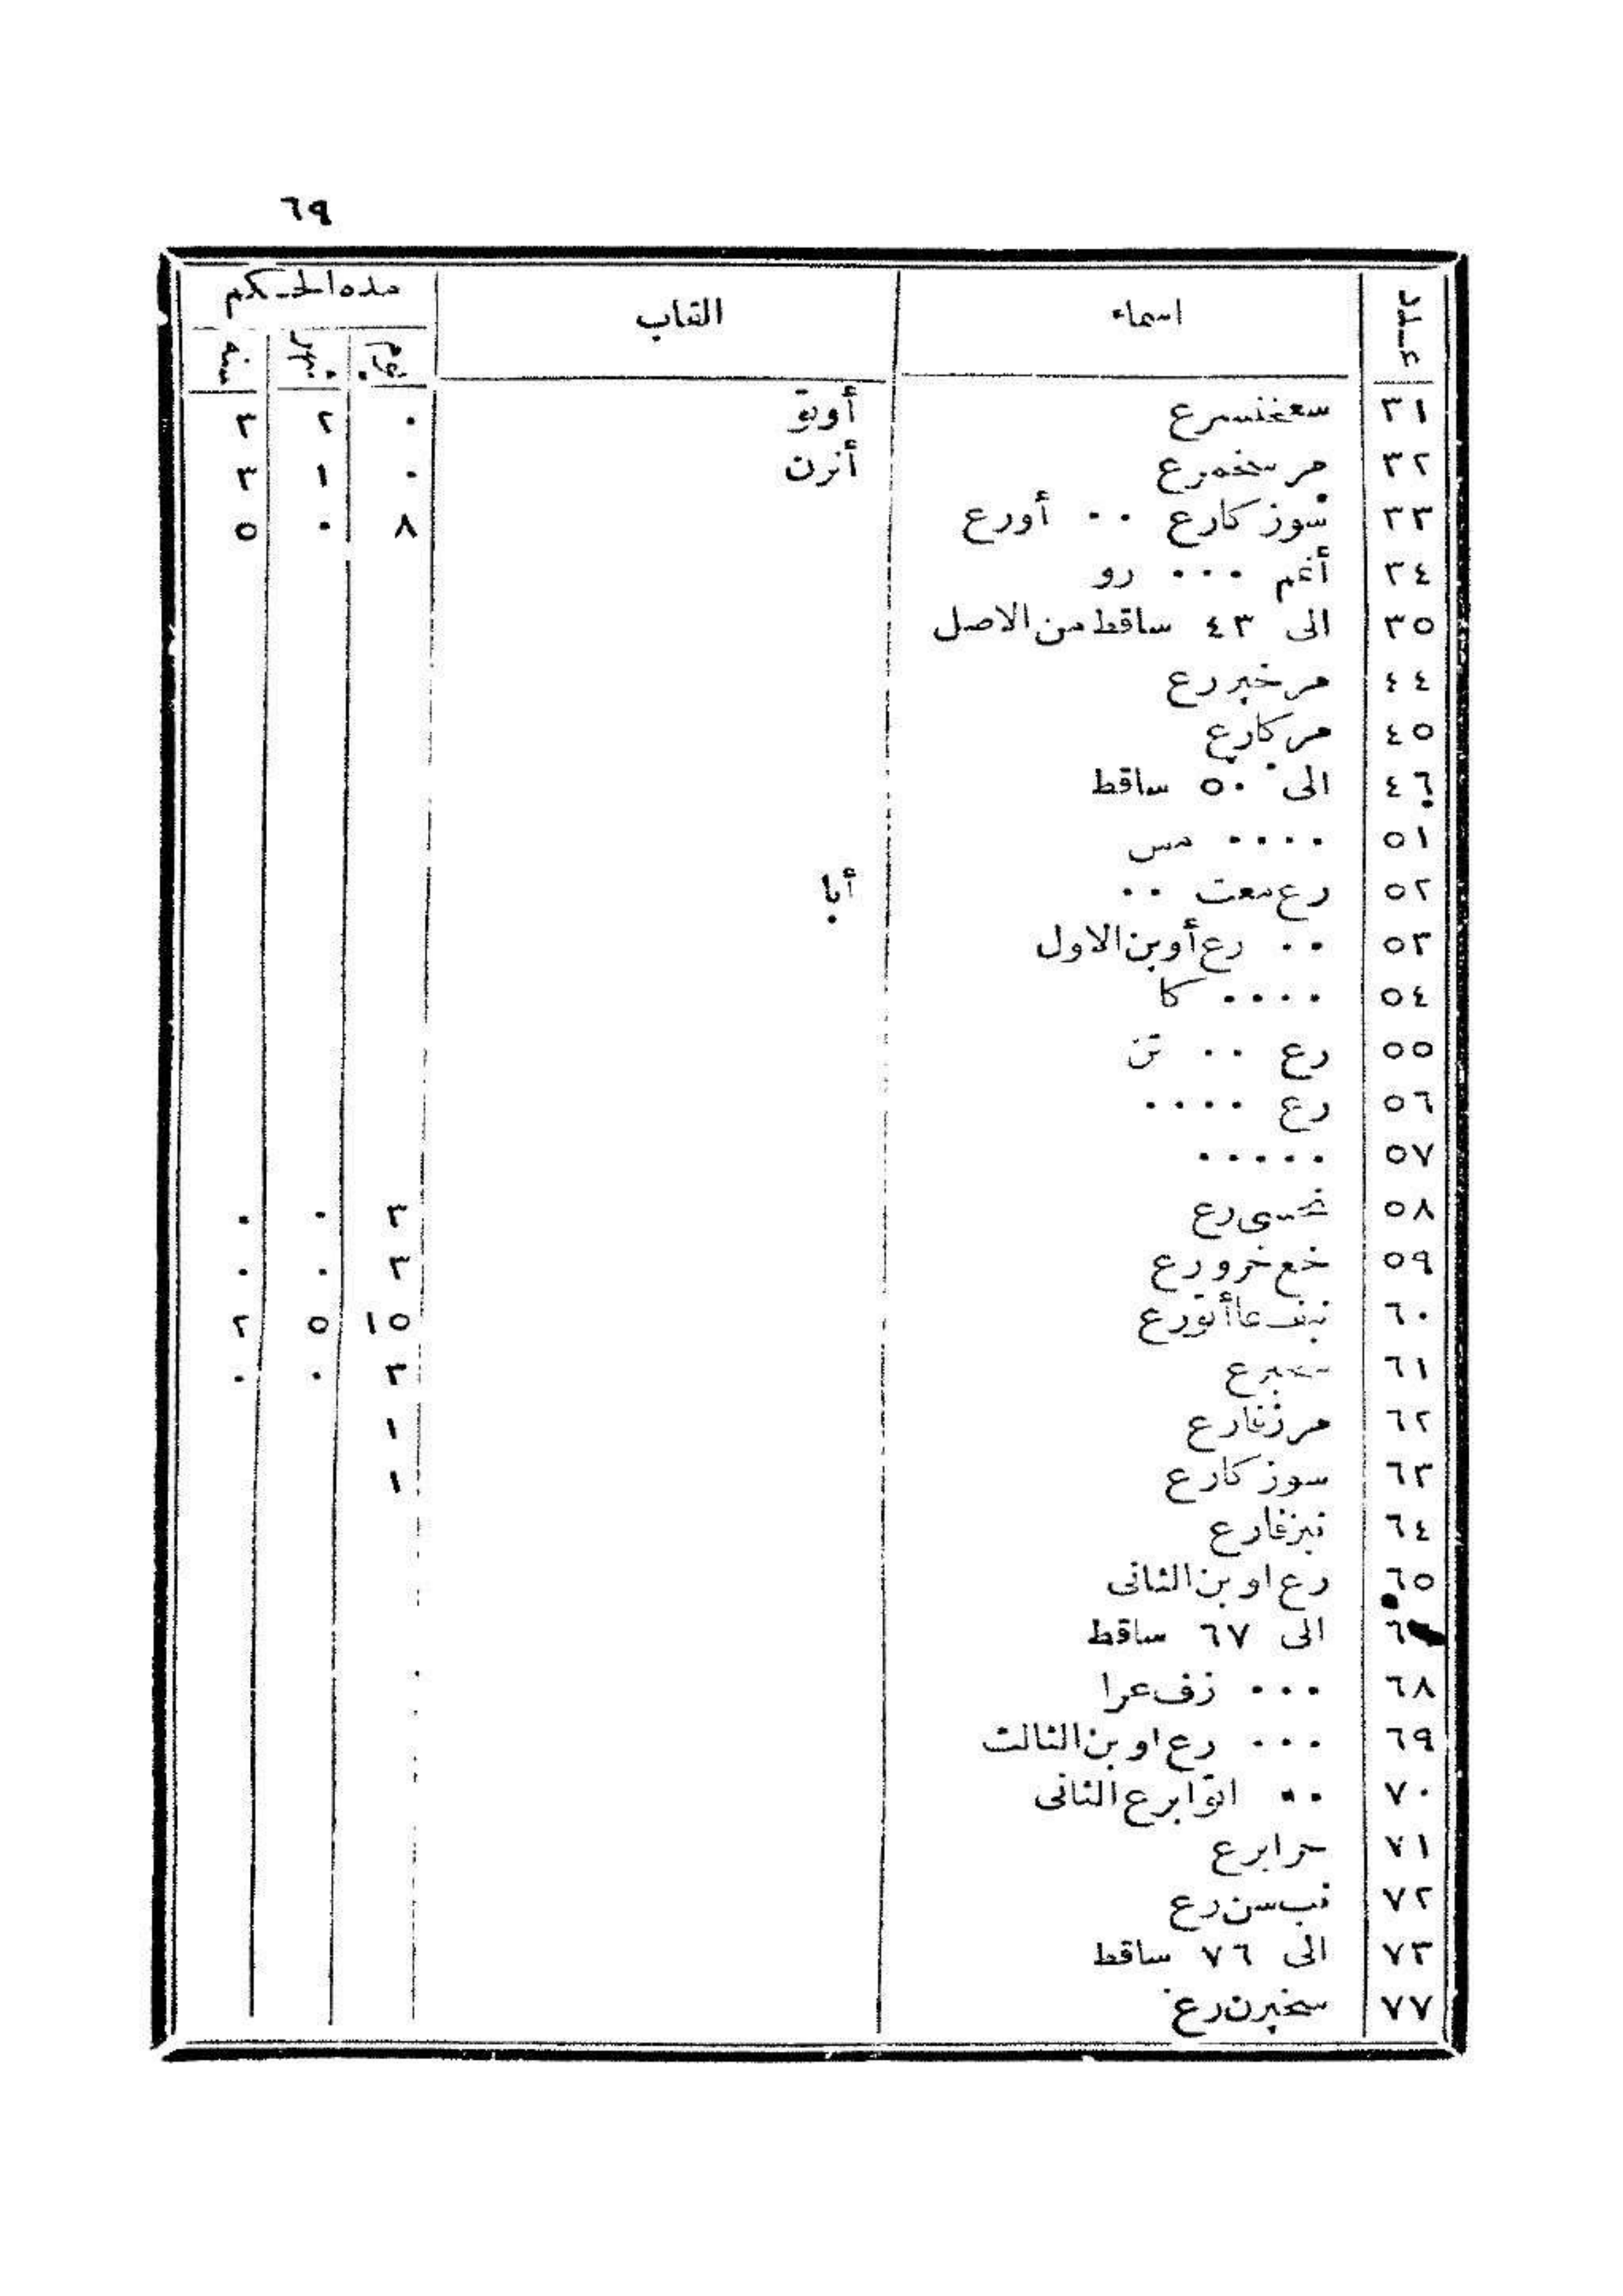 ٦٩
عدد اسماء القاب مدة الحكم
يوم شهر سنه
٣١ سعخنسرع أوتو ٠ ٢ ٣
٣٢ مرسخمرع أنرن ٠ ١ ٣
٣٣ سوزكارع ٠٠ أورع ٨ ٠ ٥
٣٤ ٠٠٠ رو
٣٥ الى ٤٣ ساقط من الاصل
٤٤ مرخبررع
٤٥ مركارع
٤٦ الى ٥٠ ساقط
٥١ ٠٠٠٠ مس
٥٢ رع معت ٠٠ أبا
٥٣ ٠٠ رع أوبن الاول
٥٤ ٠٠٠٠ كا
٥٥ رع ٠٠ تن
٥٦ رع ٠٠٠٠
٥٧ ٠٠٠٠٠
٥٨ نحسى رع ٣ ٠ ٠
٥٩ خع خرو رع ٣ ٠ ٠
٦٠ نبف عا أتورع ١٥ ٥ ٢
٦١ سحبرع ٣ ٠ ٠
٦٢ مرزفارع ١
٦٣ سوزكارع ١
٦٤ نبزفارع
٦٥ رع اوبن الثانى
٦٦ الى ٦٧ ساقط
٦٨ ٠٠٠ زف عرا
٦٩ ٠٠٠ رع اوبن الثالث
٧٠ ٠٠ اتوابرع الثانى
٧١ حرابرع
٧٢ نب سن رع
٧٣ الى ٧٦ ساقط
٧٧ سخبرن رع